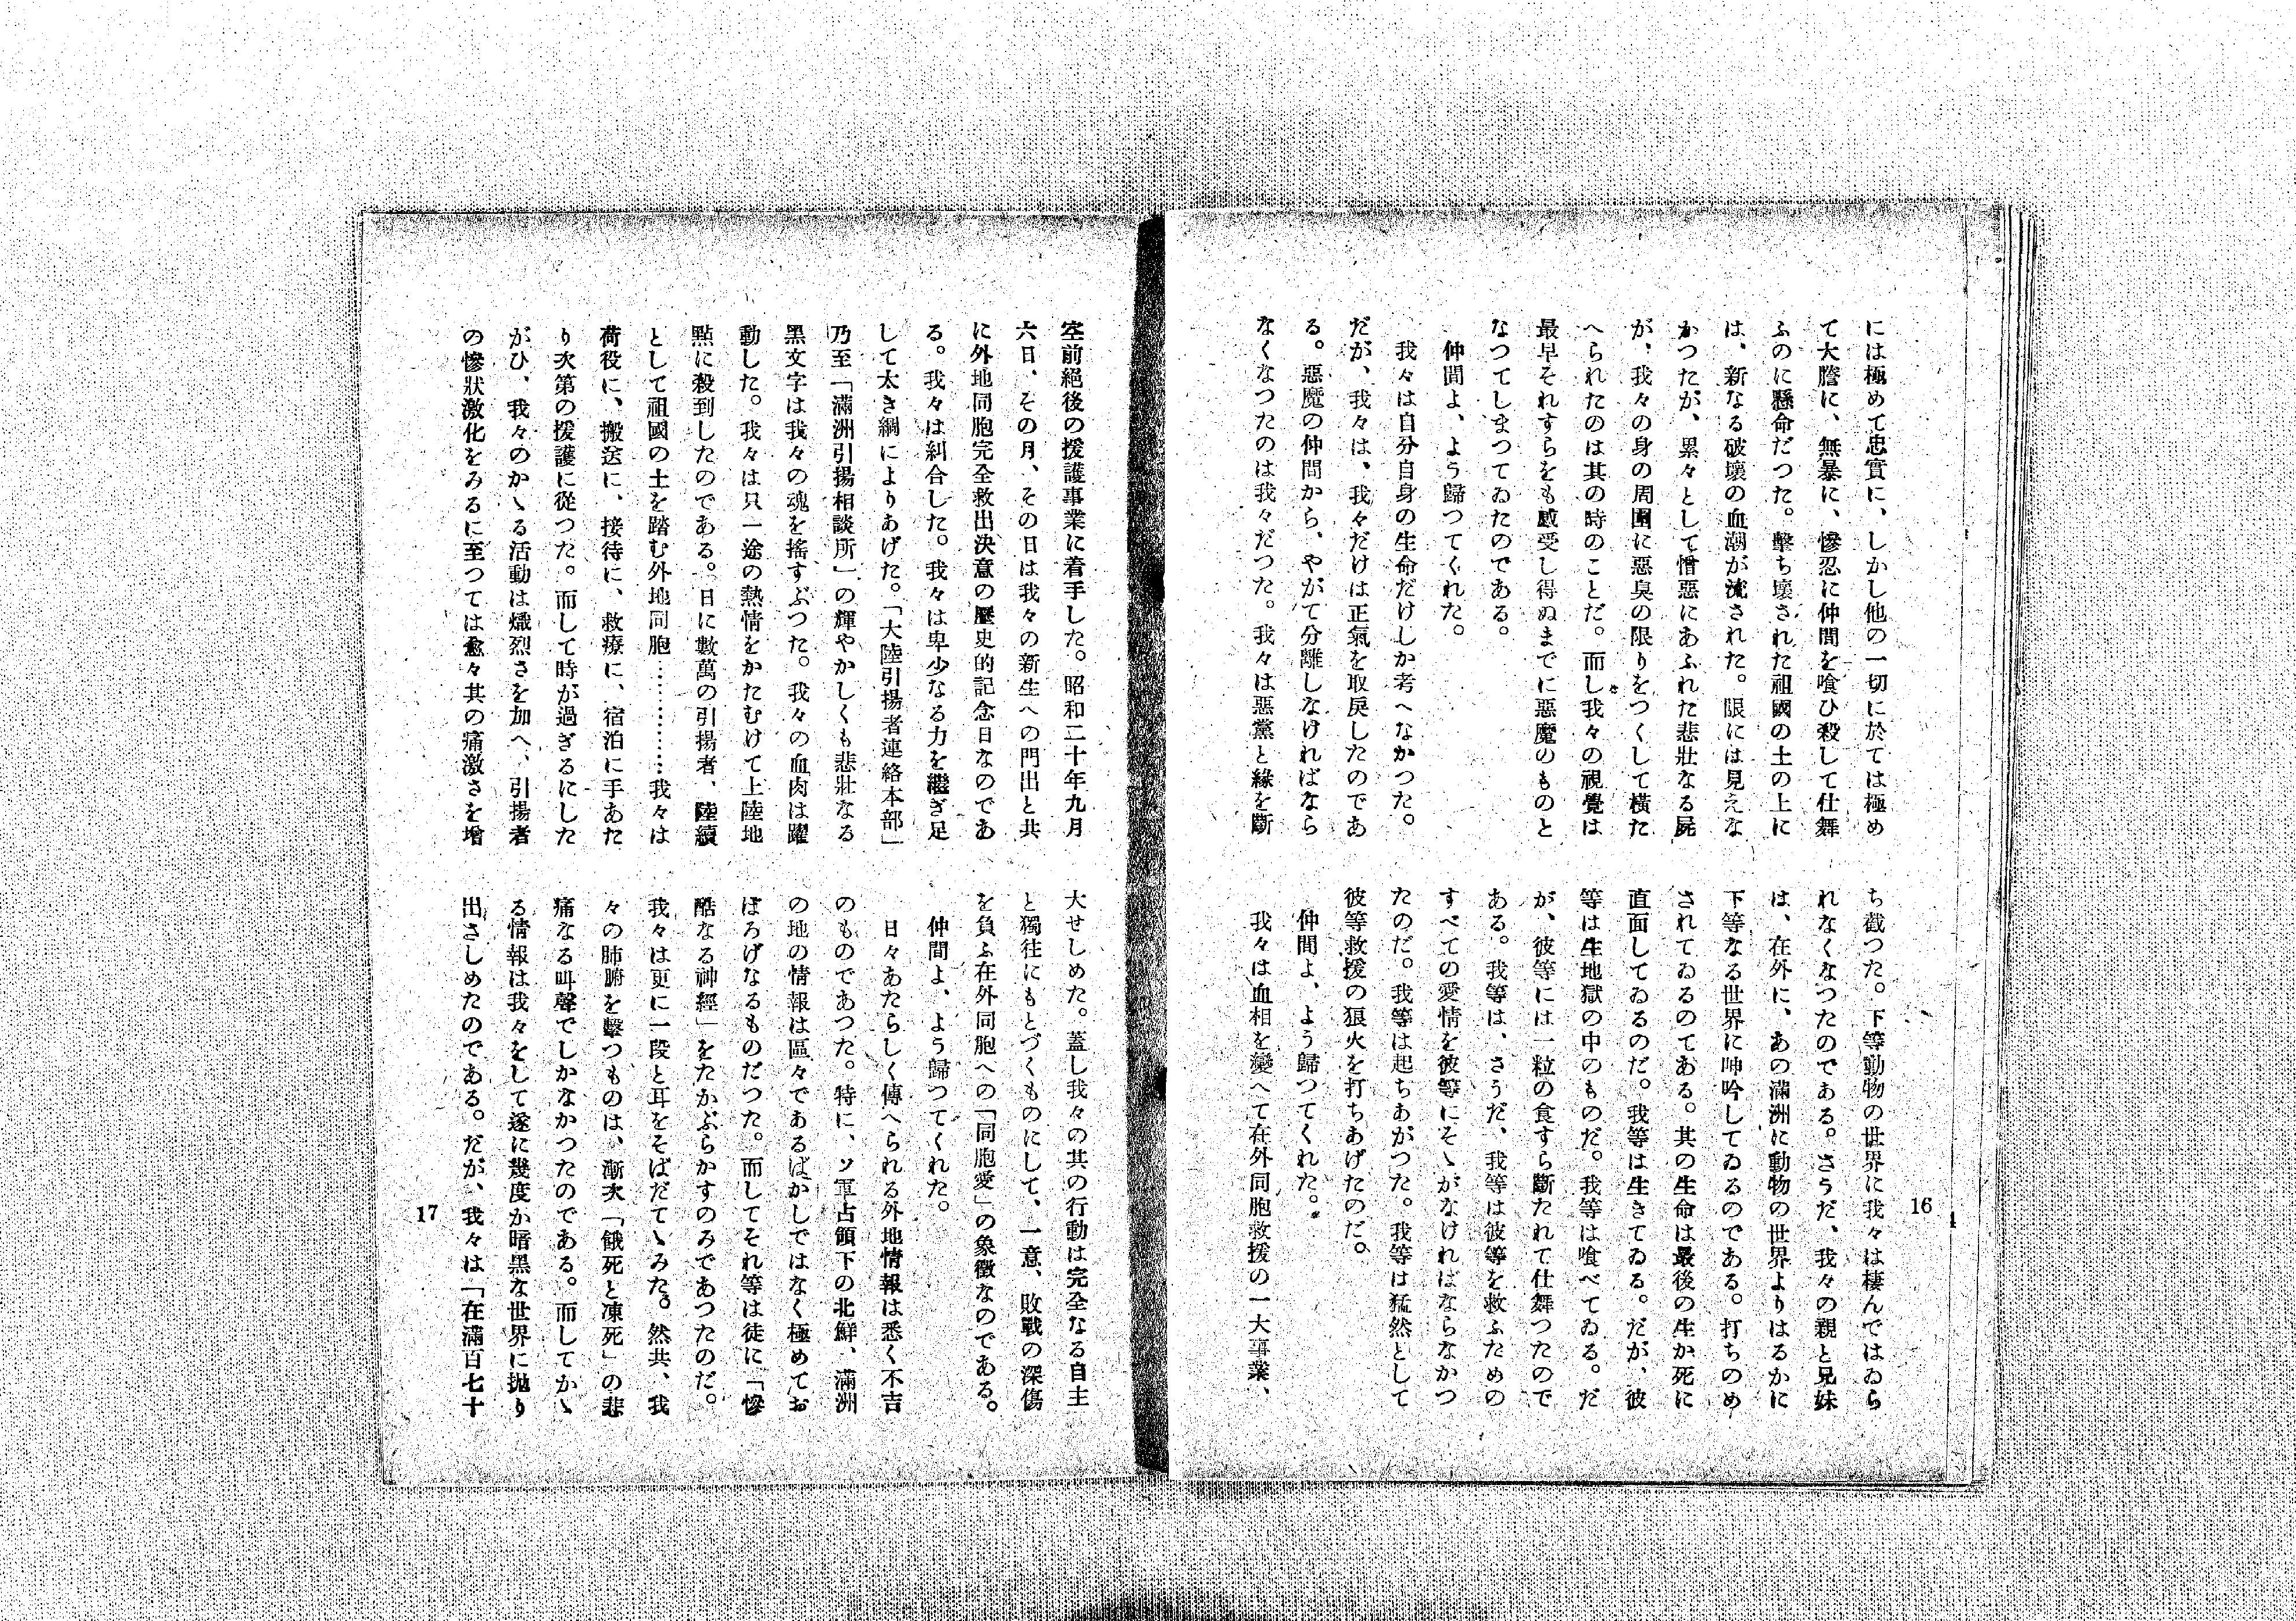 には極めて忠實に、しかし他の一切に於ては極め
て大膽に、無暴に、慘忍に仲間を喰ひ殺して仕舞
ふのに懸命だつた。擊ち壞された祖國の土の上に
は、新なる破壞の血潮が流された。眼には見えな
かつたが、累々として憎惡にあふれた悲壯なる屍
が、我々の身の周圍に惡臭の限りをつくして横た
へられたのは其の時のことだ。而し我々の視覺は
最早それすらをも感受し得ぬまでに惡魔のものと
なつてしまつてゐたのである。
仲間よ、よう歸つてくれた。
我々は自分自身の生命だけしか考へなかつた。
だが、我々は、我々だけは正氣を取戾したのであ
る。惡魔の仲間から、やがて分離しなければなら
なくなつたのは我々だつた。我々は惡黨と緣を斷
ち截つた。下等動物の世界に我々は棲んではゐら
れなくなつたのである。さうだ、我々の親と兄妹
は、在外に、あの滿洲に動物の世界よりはるかに
下等なる世界に呻吟してゐるのである。打ちのめ
されてゐるのてある。其の生命は最後の生か死に
直面してゐるのだ。我等は生きてゐる。だが、彼
等は生地獄の中のものだ。我等は喰べてゐる。だ
が、彼等には一粒の食すら斷たれて仕舞つたので
ある。我等は、さうだ、我等は彼等を救ふための
すべての愛情を彼等にそゝがなければならなかつ
たのだ。我等は起ちあがつた。我等は猛然として
彼等救援の狼火を打ちあげたのだ。
仲間よ、よう歸つてくれた。
我々は血相を變へて在外同胞救援の一大事業、
16
空前絕後の援護事業に着手した。昭和二十年九月
六日、その月、その日は我々の新生への門出と共
に外地同胞完全救出決意の歷史的記念日なのであ
る。我々は糾合した。我々は卑少なる力を繼ぎ足
して太き綱によりあげた。「大陸引揚者連絡本部」
乃至「滿洲引揚相談所」の輝やかしくも悲壯なる
黑文字は我々の魂を搖すぶつた。我々の血肉は躍
動した。我々は只一途の熱情をかたむけて上陸地
點に殺到したのである。日に數萬の引揚者、陸續
として祖國の土を踏む外地同胞…………我々は
荷役に、搬送に、接待に、救療に、宿泊に手あた
り次第の援護に從つた。而して時が過ぎるにした
がひ、我々のかゝる活動は熾烈さを加へ、引揚者
の慘狀激化をみるに至つては愈々其の痛激さを增
大せしめた。蓋し我々の其の行動は完全なる自主
と獨往にもとづくものにして、一意、敗戰の深傷
を負ふ在外同胞への「同胞愛」の象徵なのである。
仲間よ、よう歸つてくれた。
日々あたらしく傳へられる外地情報は悉く不吉
のものであつた。特に、ソ軍占領下の北鮮、滿洲
の地の情報は區々であるばかしではなく極めてお
ぼろげなるものだつた。而してそれ等は徒に「慘
酷なる神經」をたかぶらかすのみであつたのだ。
我々は更に一段と耳をそばだてゝみた。然共、我
々の肺腑を擊つものは、漸次「餓死と凍死」の悲
痛なる叫聲でしかなかつたのである。而してかゝ
る情報は我々をして遂に幾度か暗黑な世界に抛り
出さしめたのである。だが、我々は「在滿百七十
17